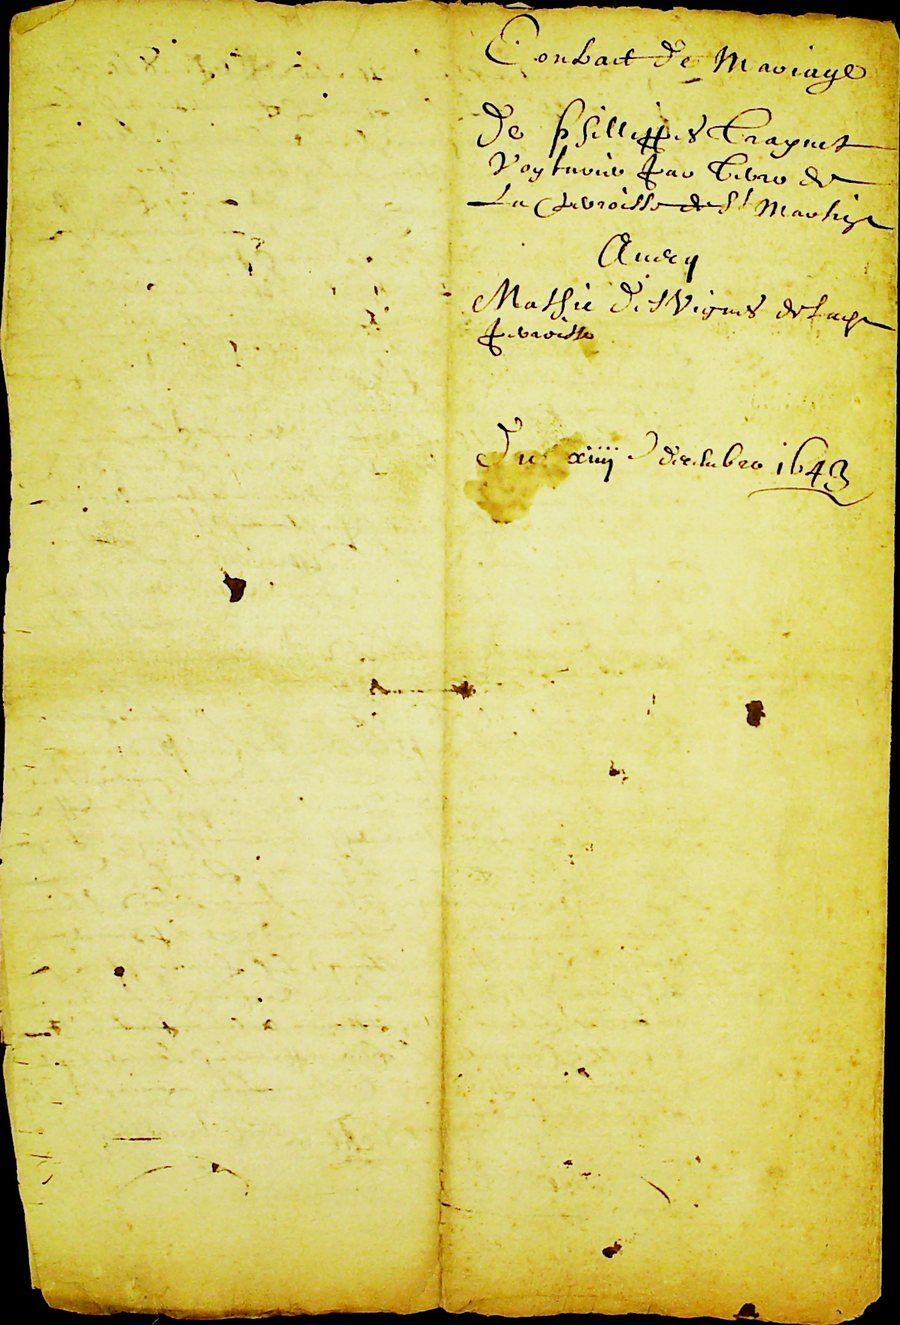 Contract de Mariage
De Phillippes Traynet
Voyturier par terre de
La parroisse de St Martin
Avecq
Mathie des Vignes de
parroisse
Du xiiii decembre 1643